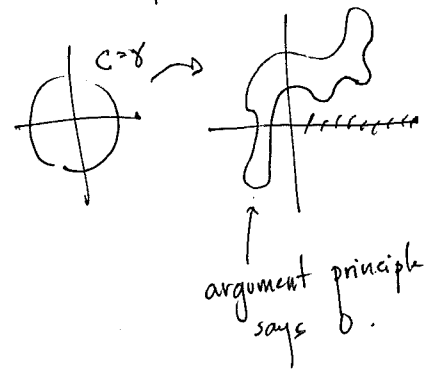 C = γ
argument principle
says 0.